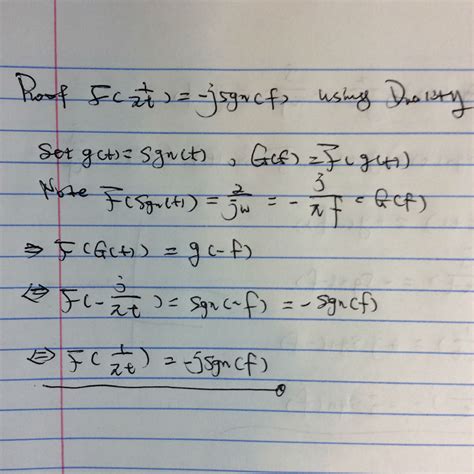 Proof F(1/πt) = -jsgn(f) using Duality
Set g(t) = sgn(t) , G(f) = F(g(t))
Note F(sgn(t)) = 2/jw = - j/πf = G(f)
⇒ F(G(t)) = g(-f)
⇔ F(- j/πt) = sgn(-f) = -sgn(f)
⇔ F(1/πt) = -jsgn(f)